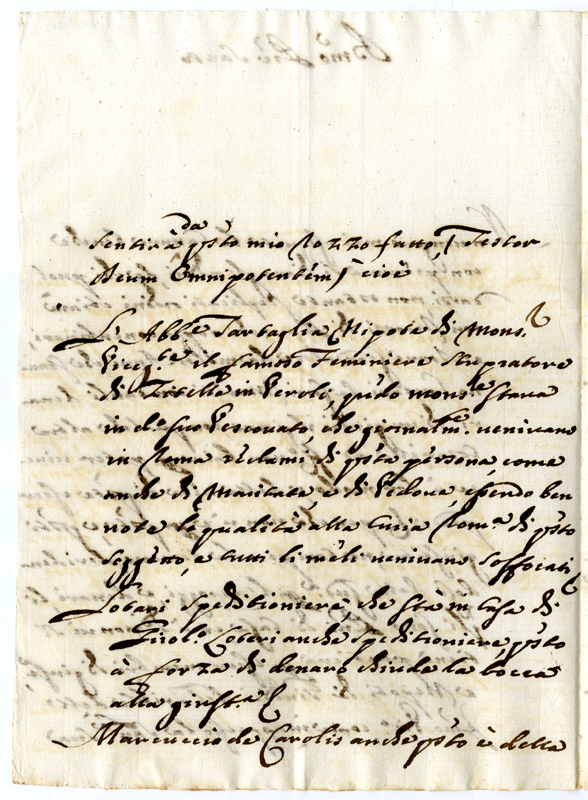 da
sentirà q̃sto mio rozzo fatto, (Testor
Deum Omnipotentẽm) cioè
L'Abb.e Tartaglia Nipote di Mons.r
Viceg.te il famoso Feminiere Stupratore
di Zitelle in Veroli, q̃ndo mons.e stava
in d.o suo Vescovato, che giornalm.te venivano
in Roma reclami di q̃sta persona, come
anche di Maritate, e di Vedove, essendo ben
note le qualità alla Curia Rom.a di q̃sto
soggetto, e tutti li venivano soffocati
speditioniere, che stà in Casa di
Girol.o Loteri anche speditioniere, q̃sto
à forza di denaro chiude la bocca
alla giust.a
Marcuccio de Carolis anche q̃sto è della